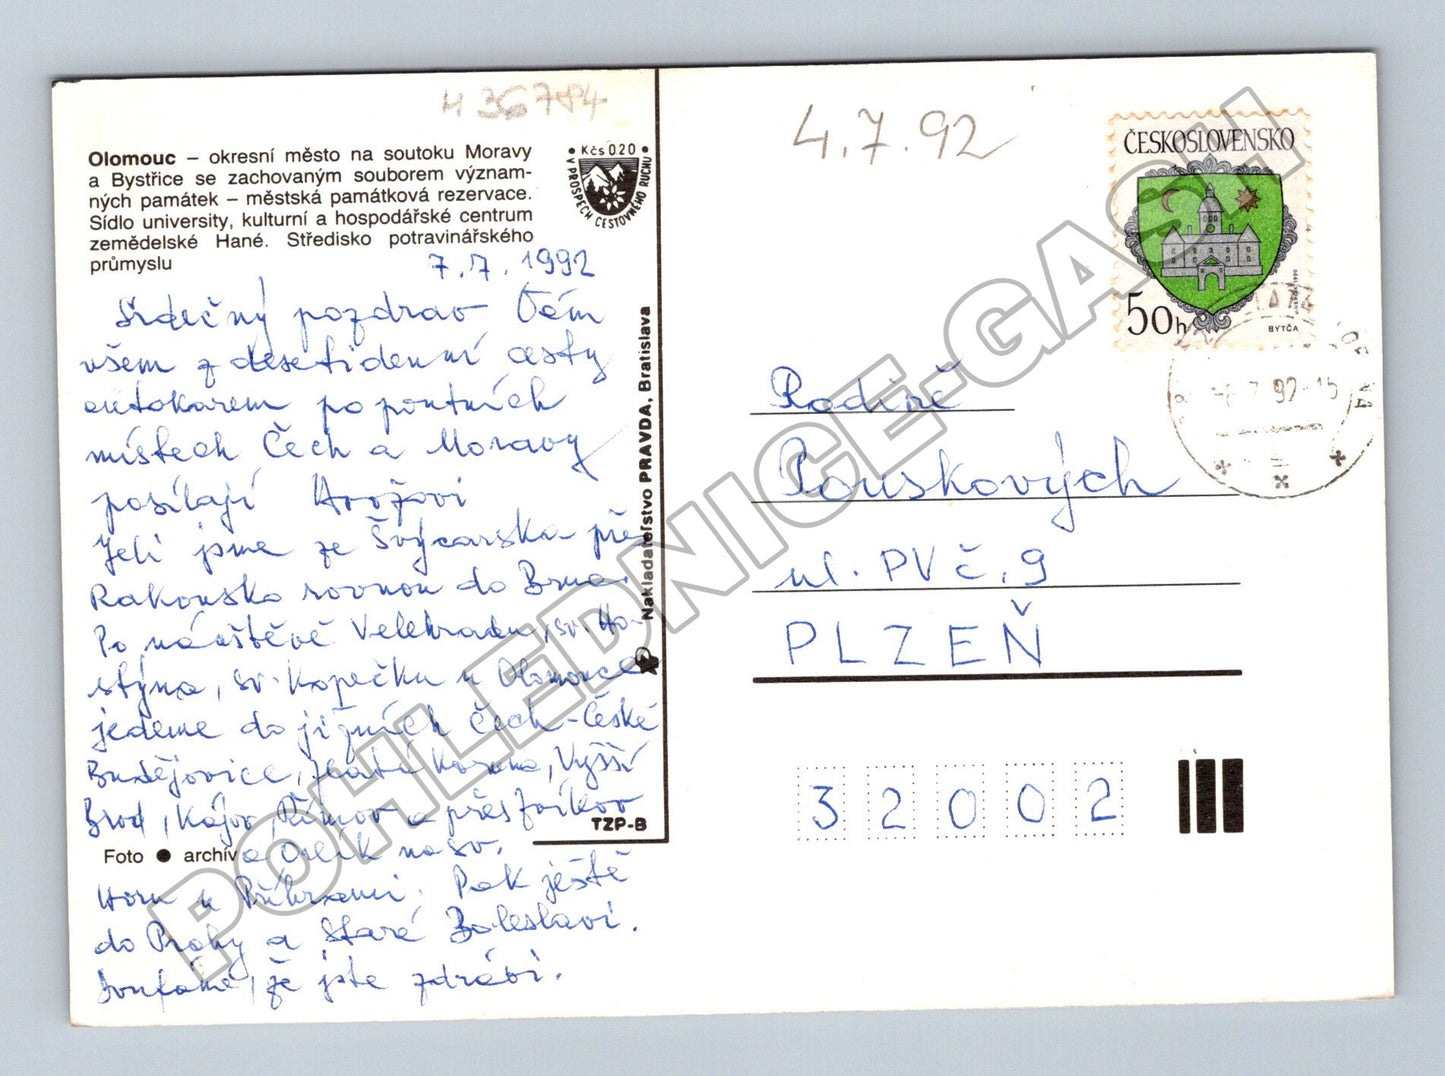 H 36784
Olomouc – okresní město na soutoku Moravy
a Bystřice se zachovaným souborem význam-
ných památek – městská památková rezervace.
Sídlo university, kulturní a hospodářské centrum
zemědelské Hané. Středisko potravinářského
průmyslu
• Kčs 0.20 •
V PROSPĚCH CESTOVNÉHO RUCHU
7.7.1992
Srdečný pozdrav Vám
všem z desetidenní cesty
autokarem po poutních
místech Čech a Moravy
posílají
Jeli jsme ze Švýcarska přes
Rakousko rovnou do Brna.
Po návštěvě Velehradu, sv. Ho-
stýna, sv. Kopečku u Olomouce
jedeme do jižních Čech - České
Budějovice, Zlatá Koruna, Vyšší
Brod, Kájov, Římov a přes Zvíkov
a Orlík na sv.
Horu u Příbrami. Pak ještě
do Prahy a Staré Boleslavi.
Doufáme, že jste zdrávi.
Foto ● archív
TZP-B
Nakladateľstvo PRAVDA, Bratislava
4.7.92
ČESKOSLOVENSKO
50h
BYTČA
-8.7.92-15
Rodině
Pouskových
ul. PV č. 9
PLZEŇ
32002
POHLEDNICE-GASH